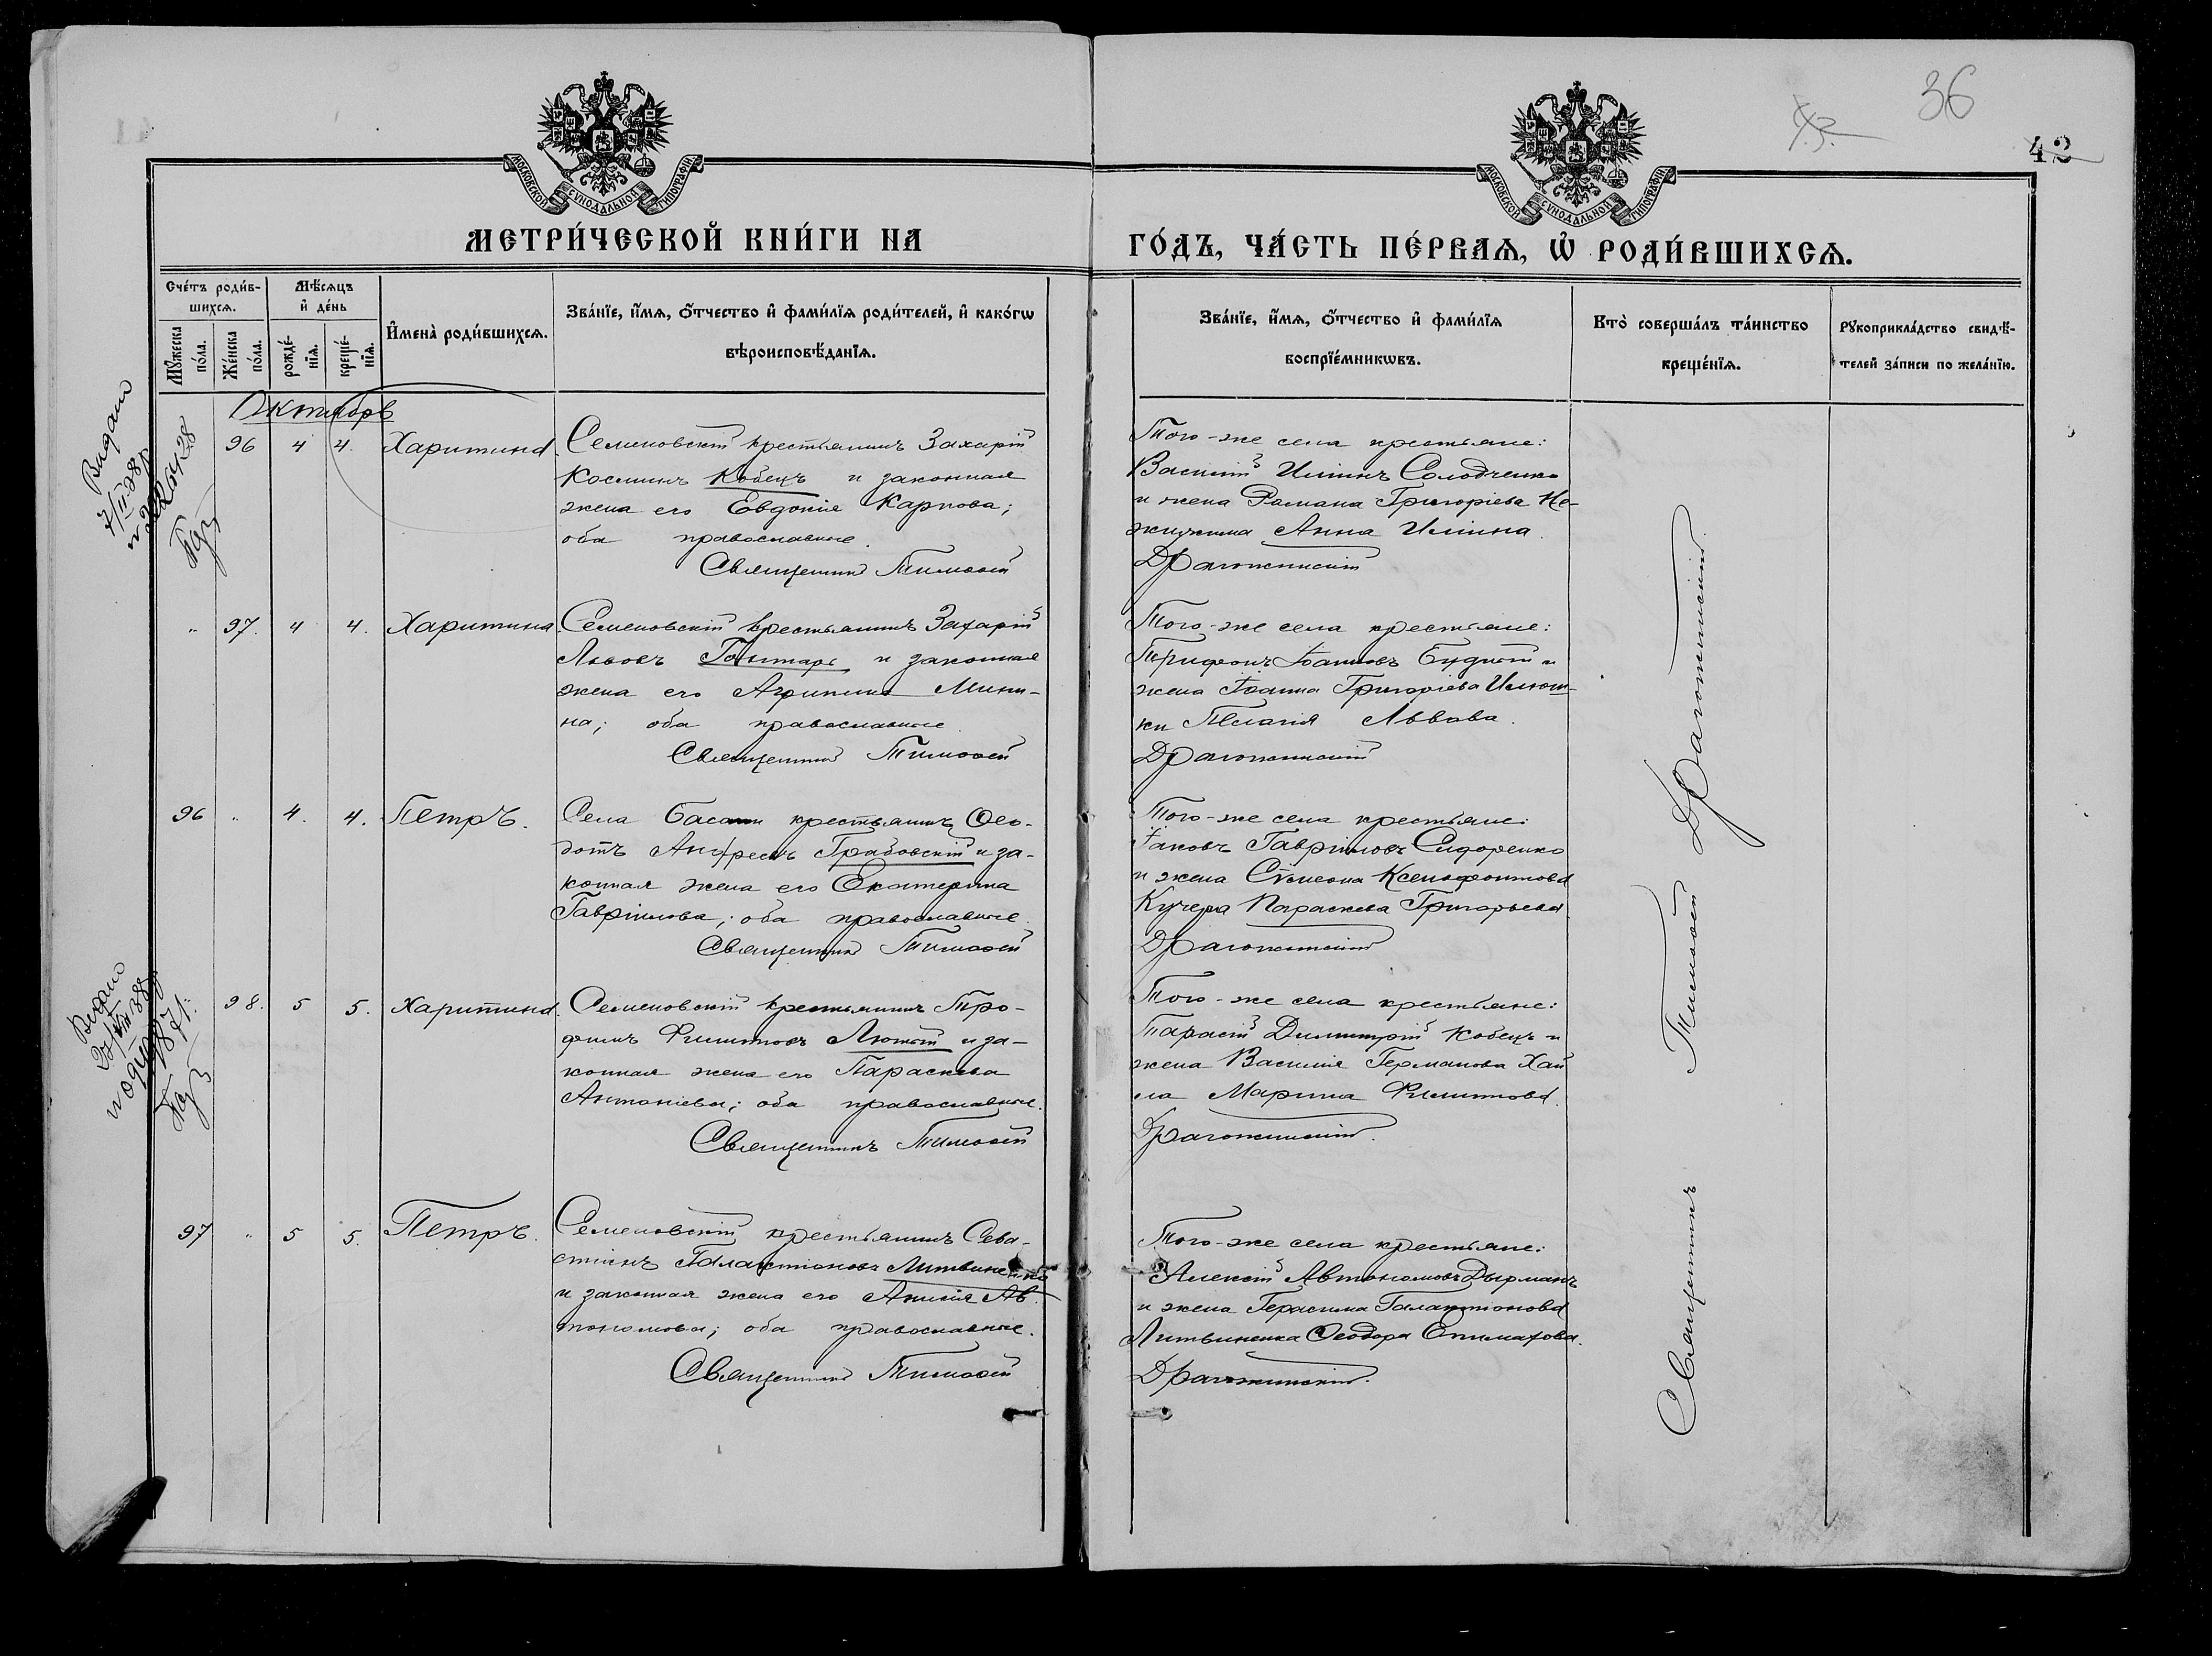 36
43.
42
МОСКОВСКОЙ СѴНОДАЛЬНОЙ ТИПОГРАФІИ
МОСКОВСКОЙ СѴНОДАЛЬНОЙ ТИПОГРАФІИ
МЕТРИ́ЧЕСКОЙ КНИ́ГИ НА
ГО́ДЪ, ЧА́СТЬ ПЕ́РВАѦ, Ѡ҆ РОДИ́ВШИХСѦ.
Сче́тъ роди́в-
шихсѧ.
Мꙋжеска
по́ла.
Же́нска
по́ла.
Мѣ́сѧцъ
и҆ де́нь
рожде́-
нїѧ.
креще́-
нїѧ.
И҆мена̀ роди́вшихсѧ.
Зва́нїе, и҆́мѧ, ѻ҆́тчество и҆ фами́лїѧ роди́телей, и҆ како́гѡ
вѣроисповѣ́данїѧ.
Зва́нїе, и҆́мѧ, ѻ҆́тчество и҆ фами́лїѧ
воспрїе́мникѡвъ.
Кто̀ соверша́лъ та́инство
креще́нїѧ.
Рꙋкоприкла́дство свидѣ́-
телей за́писи по жела́нїю.
Октябрь
96 4 4. Харитина
Семеновскій крестьянинъ Захарій
Косминъ Кобецъ и законная
жена его Евдокія Карпова;
оба православные.
Священникъ Тимоѳей
Того-же села крестьяне:
Василій Илiинъ Солодченко
и жена Романа Григоріева Не-
жижима Анна Илiина.
Драгожинскій
" 97. 4 4. Харитина
Семеновскій крестьянинъ Захарій
Львовъ Гонтарь и законная
жена его Агрипина Мини-
на; оба православные
Священникъ Тимоѳей
Того-же села крестьяне:
Трифонъ Іоанновъ и
жена Іоанна Григоріева
ки Пелагія Львова.
Драгожинскій
96 " 4. 4. Петръ.
Села Басани крестьянинъ Ѳео-
дотъ Грабовскій и за-
конная жена его Екатерина
Гавріилова; оба православные.
Священникъ Тимоѳей
Того-же села крестьяне:
Іаковъ Гавріиловъ Сидоренко
и жена Сѵмеона Ксенофонтова
Кучера Параскева Григорьева
Драгожинскій
98. 5 5. Харитина.
Семеновскій крестьянинъ Тро-
фимъ Филиповъ Лютый и за-
конная жена его Параскева
Антоніева; оба православные.
Священникъ Тимоѳей
Того-же села крестьяне:
Тарасій Димитрій Кобецъ и
жена Василія Германова Хай
ла Марина Филиппова.
Драгожинскій.
97 " 5 5. Петръ.
Семеновскій крестьянинъ Сева-
стіянъ Галактіоновъ Литвиненко
и законная жена его Анисія Ав-
тономова; оба православные.
Священникъ Тимоѳей
Того-же села крестьяне:
Алексій Автономовъ Дырманъ
и жена Герасима Галактіонова
Литвиненка Ѳеодора Епимахова.
Драгожинскій.
Священникъ Тимоѳей Драгожинскій
Видано
Видано